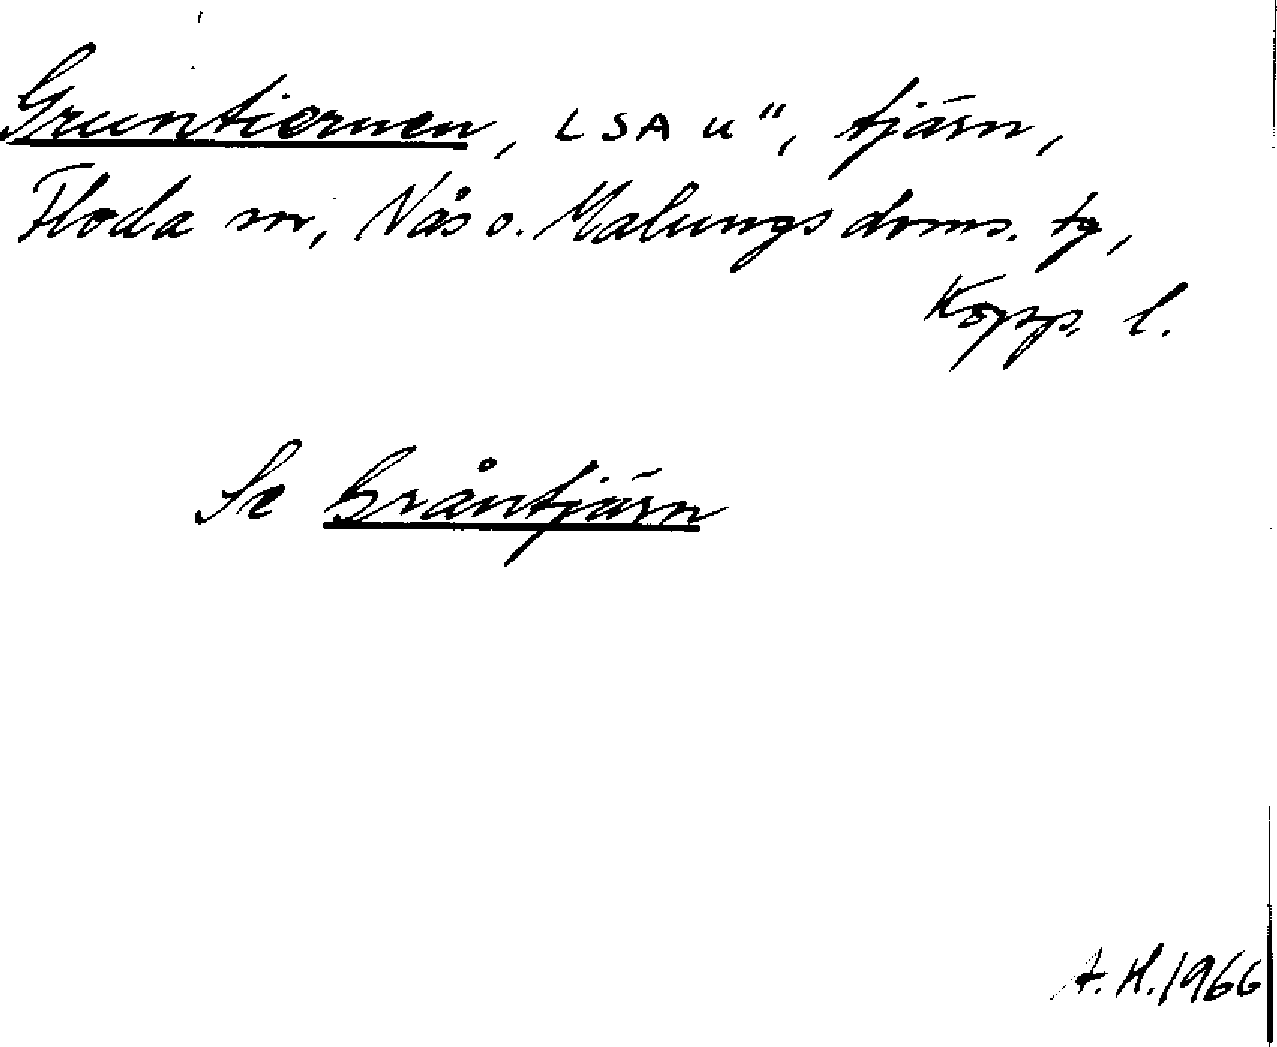 Gruntiernen, LSA u", tjärn,
Floda sn, Nås o. Malungs doms. tg,
Kopp. l.
Se Gråntjärn
A. H. 1966